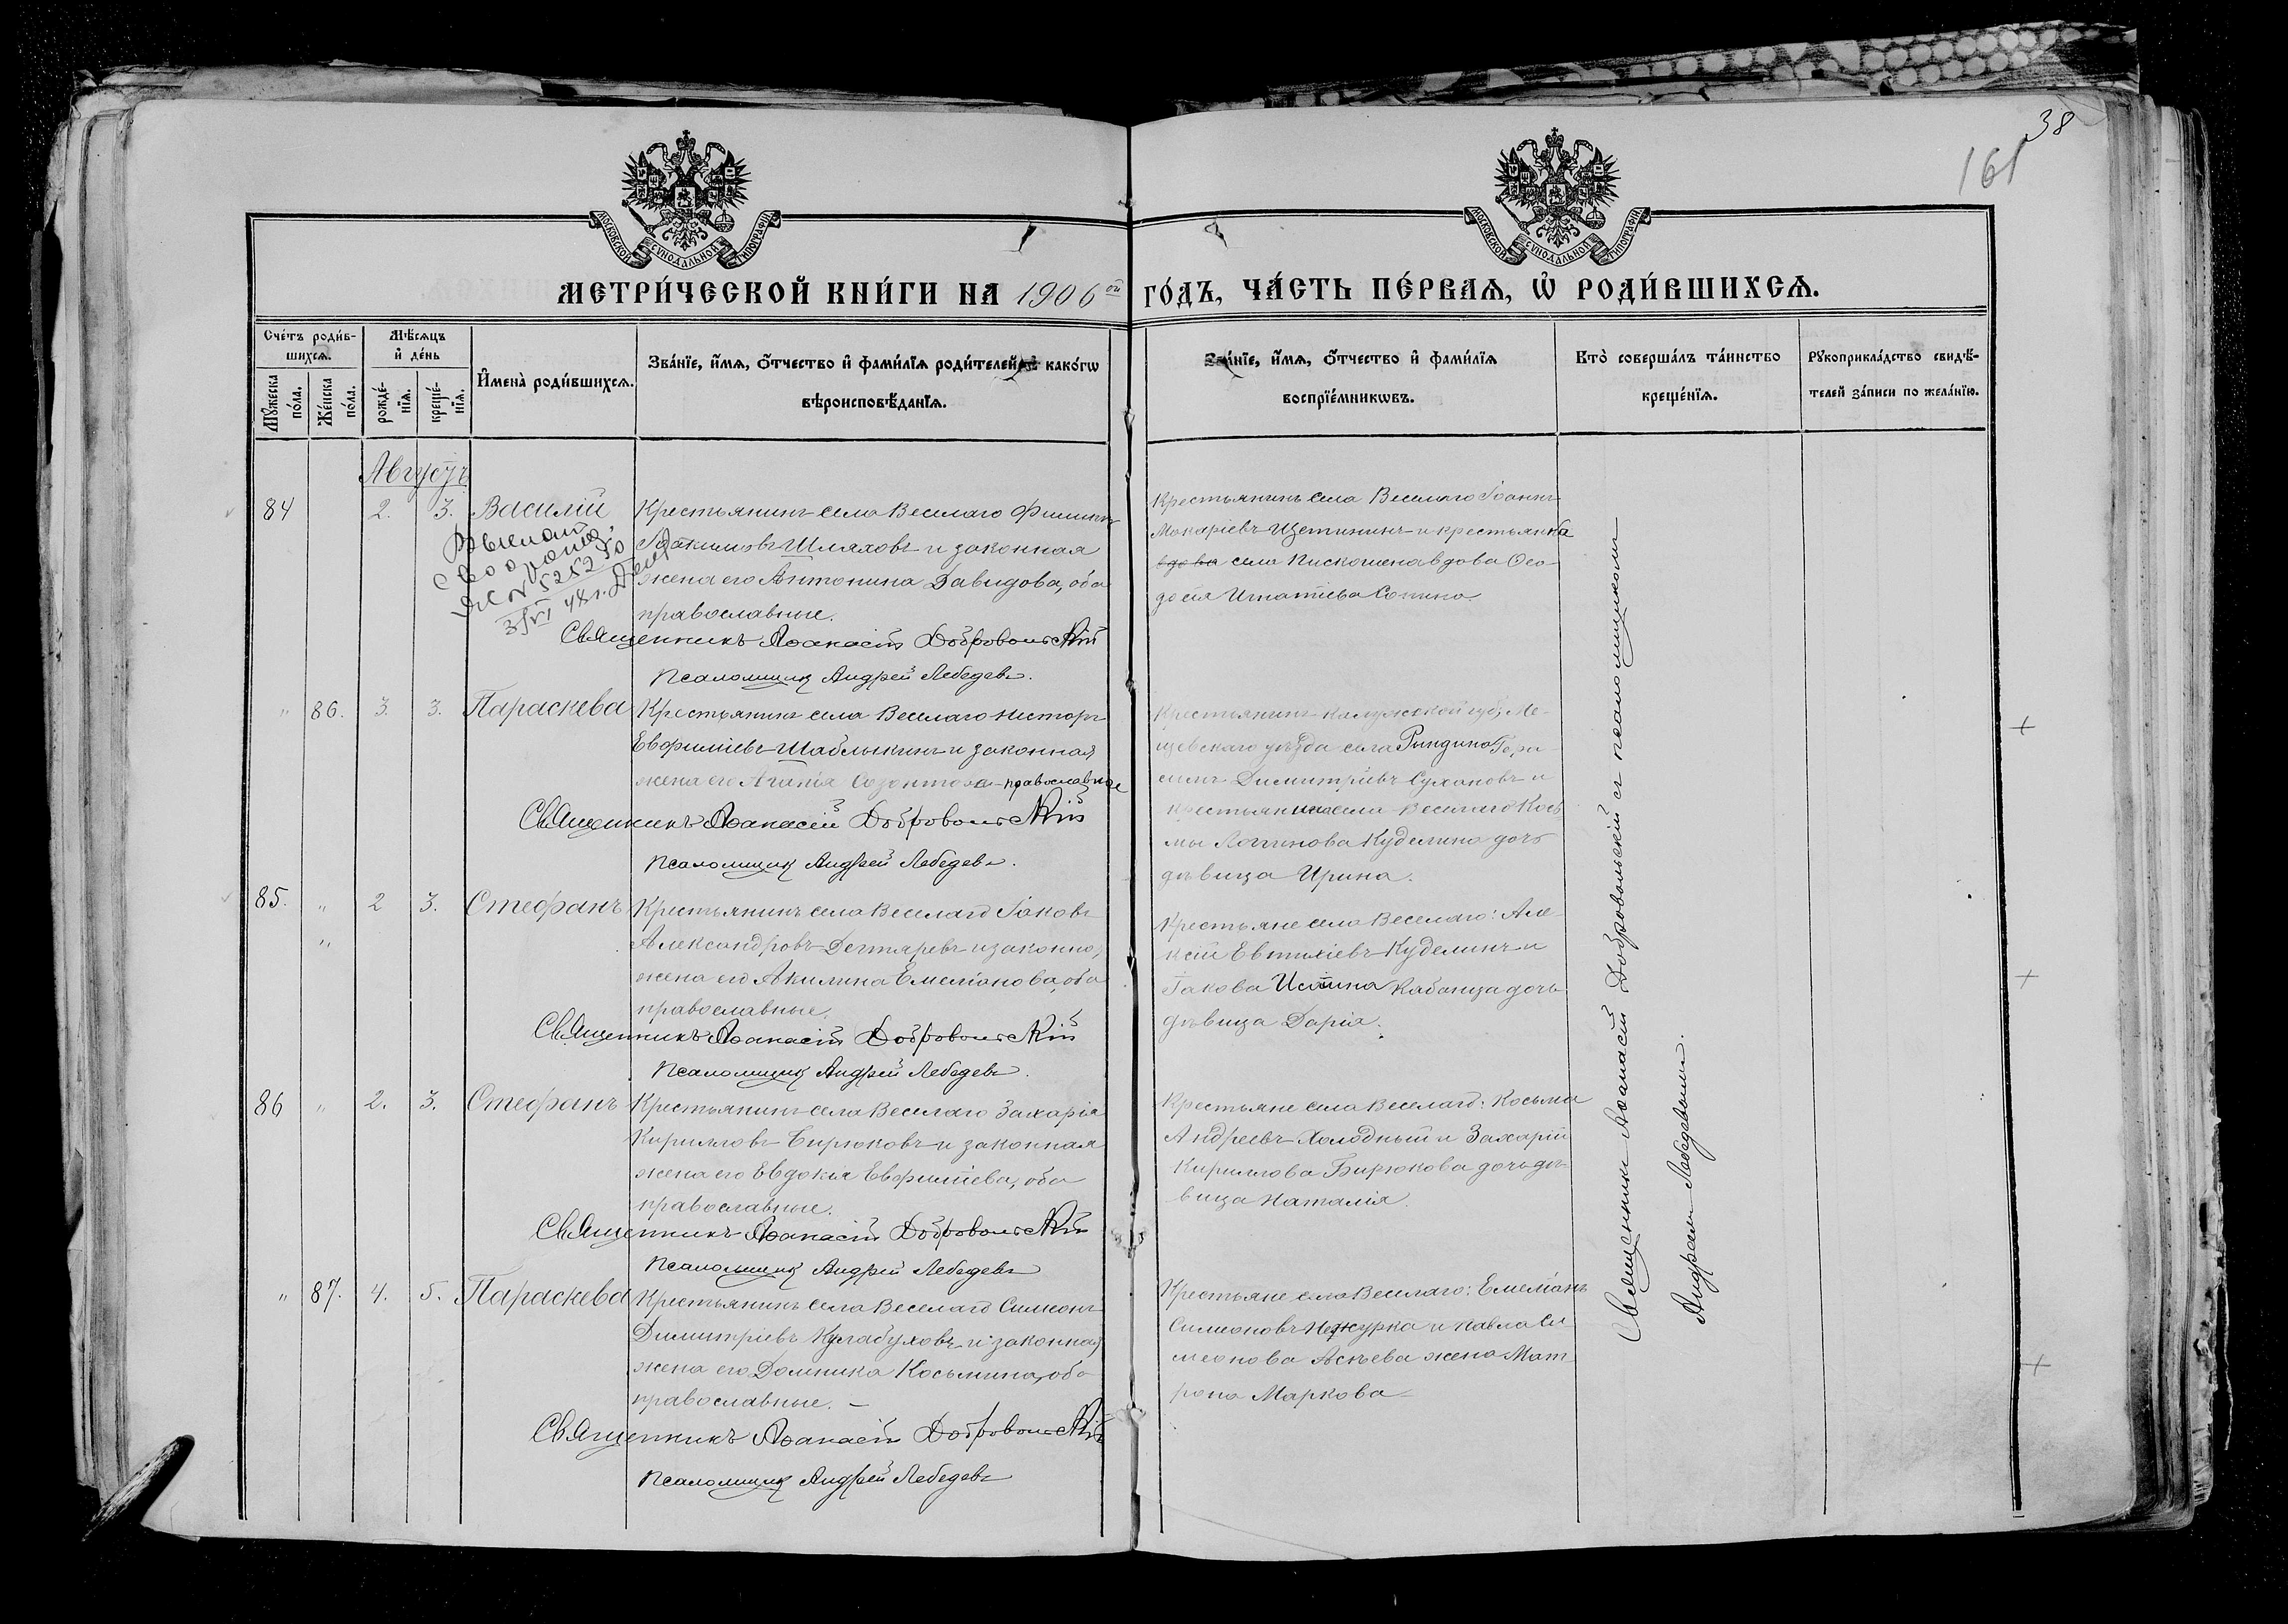 38
161
МОСКОВСКОЙ СѴНОДАЛЬНОЙ ТИПОГРАФІИ
МОСКОВСКОЙ СѴНОДАЛЬНОЙ ТИПОГРАФІИ
МЕТРИ́ЧЕСКОЙ КНИ́ГИ НА 1906ой ГО́ДЪ, ЧА́СТЬ ПЕ́РВАѦ, Ѡ҆ РОДИ́ВШИХСѦ.
Сче́тъ роди́в-
шихсѧ.
Мѣ́сѧцъ
и҆ де́нь
Мꙋ́жеска по́ла.
Же́нска по́ла.
рожде́-
нїѧ.
креще́-
нїѧ.
И҆мена̀ роди́вшихсѧ.
Зва́нїе, и҆́мѧ, ѻ҆́тчество и҆ фами́лїѧ роди́телей, и҆ како́гѡ
вѣроисповѣ́данїѧ.
Зва́нїе, и҆́мѧ, ѻ҆́тчество и҆ фами́лїѧ
воспрїе́мникѡвъ.
Кто̀ соверша́лъ та́инство
креще́нїѧ.
Рꙋкоприкла́дство свидѣ́-
телей за́писи по жела́нїю.
Августъ
84 2. 3. Василій
Крестьянинъ села Веселаго Филиппъ
Іоакимовъ Шляховъ и законная
жена его Антонина Давидова, оба
православные.
№ 5252
48 г.
Священникъ Аѳанасій Добровольскій
Псаломщикъ Андрей Лебедевъ.
Крестьянинъ села Веселаго Іоаннъ
Макаріевъ Щетининъ и крестьянка
вдова села Пискошена вдова Ѳео-
досія Игнатіева Сопина
" 86. 3. 3. Параскева
Крестьянинъ села Веселаго Несторъ
Евфиміевъ Шаблыкинъ и законная
жена его Агапія Созонтова православные
Священникъ Аѳанасій Добровольскій
Псаломщикъ Андрей Лебедевъ.
Крестьянинъ Калужской губ, Ме-
щевскаго уѣзда села Рындино Гера-
симъ Димитріевъ Сухановъ и
крестьянина села Веселаго Кось
мы Логгинова Куделина дочь
дѣвица Ирина.
85. " 2 3. Стефанъ
"
Крестьянинъ села Веселаго Іаковъ
Александровъ Дегтяревъ и законная
жена его Акилина Емеліонова, оба
православные.
Священникъ Аѳанасій Добровольскій
Псаломщикъ Андрей Лебедевъ.
Крестьяне села Веселаго: Але-
ксій Евтихіевъ Куделинъ и
Іакова Исаіина Кабанца дочь
дѣвица Дарія.
86 " 2. 3. Стефанъ
Крестьянинъ села Веселаго Захарія
Кирилловъ Бирюковъ и законная
жена его Евдокія Евфиміева, оба
православные.
Священникъ Аѳанасій Добровольскій
Псаломщикъ Андрей Лебедевъ
Крестьяне села Веселаго: Косьма
Андреевъ Холодный и Захарій
Кириллова Бирюкова дочь дѣ-
вица Наталія.
" 87. 4. 5. Параскева
Крестьянинъ села Веселаго Симеонъ
Димитріевъ Кулабуховъ и законная
жена его Домника Косьмина, оба
православные. —
Священникъ Аѳанасій Добровольскій
Псаломщикъ Андрей Лебедевъ
Крестьяне села Веселаго: Емеліанъ
Симеоновъ и Павла Си-
меонова жена Мат-
рона Маркова
Священникъ Аѳанасій Добровольскій съ псаломщикомъ
Андреемъ Лебедевымъ.